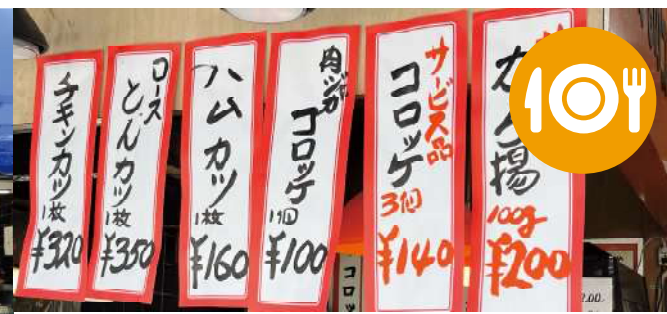 チキンカツ
1枚
¥320
ロース
とんカツ
1枚
¥350
ハムカツ
1枚
¥160
肉ジャガ
コロッケ
1個
¥100
サービス品
コロッケ
3個
¥140
揚
100g
¥200
コロッ